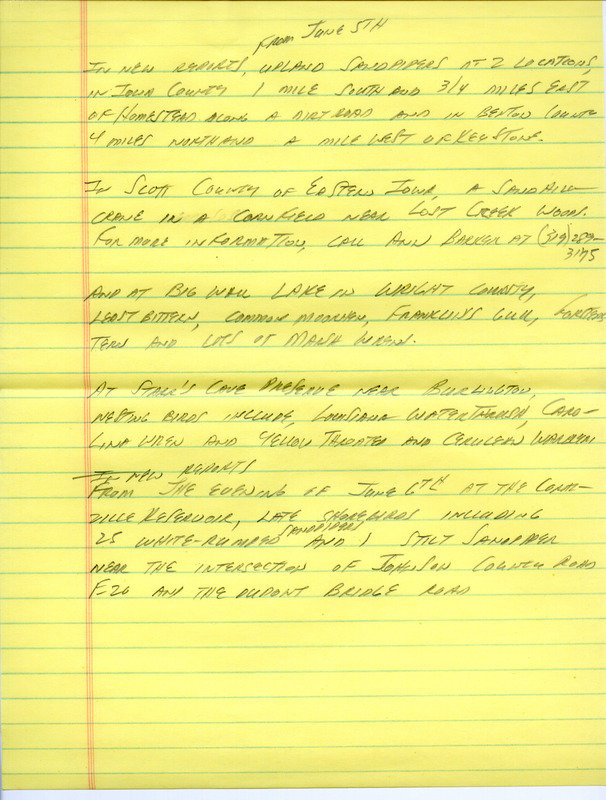 From June 5th
In new reports, upland sandpipers at 2 locations,
in Iowa County 1 mile south and 3/4 miles east
of Homestead along a dirt road and in Benton County
4 miles north and a mile west of Keystone.
In Scott County of Eastern Iowa, a sandhill
crane in a cornfield near Lost Creek Woods.
For more information, call Ann Barker at (319) 289-
3175
And at Big Wall Lake in Wright County,
least bittern, common moorhen, Franklin's gull, Forsters
tern and lots of marsh wren.
At Starr's Cave Preserve near Burlington,
nesting birds include, Louisiana waterthrush, Caro-
lina wren and yellow throated and cerulean warblers
In new reports
From the evening of June 6th at the Coral-
ville Reservoir, late shorebirds including
sandpipers
25 white-rumped and 1 stilt sandpiper
near the intersection of Johnson County Road
F-20 and the Dupont Bridge Road